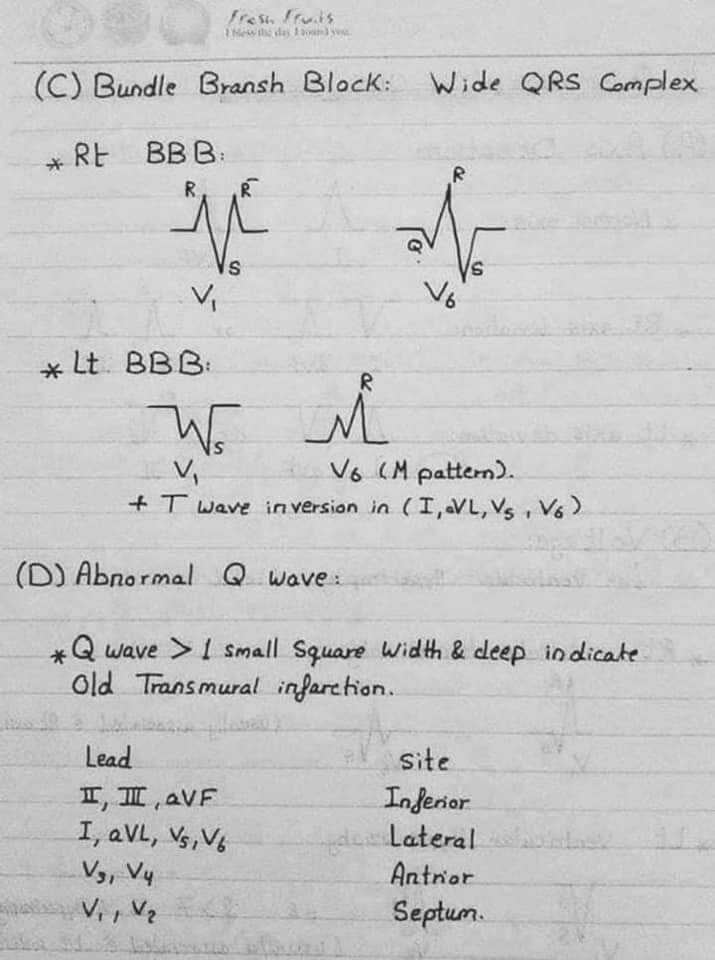 Fresh Fruits
I bless the day I found you.
(C) Bundle Bransh Block: Wide QRS Complex
* Rt BBB:
R R̄ R
S Q S
V₁ V₆
* Lt BBB:
R
S
V₁ V₆ (M pattern).
+ T wave inversion in (I, aVL, V₅, V₆)
(D) Abnormal Q wave:
* Q wave > 1 small Square width & deep indicate
Old Transmural infarction.
Lead Site
II, III, aVF Inferior
I, aVL, V₅, V₆ Lateral
V₃, V₄ Antrior
V₁, V₂ Septum.